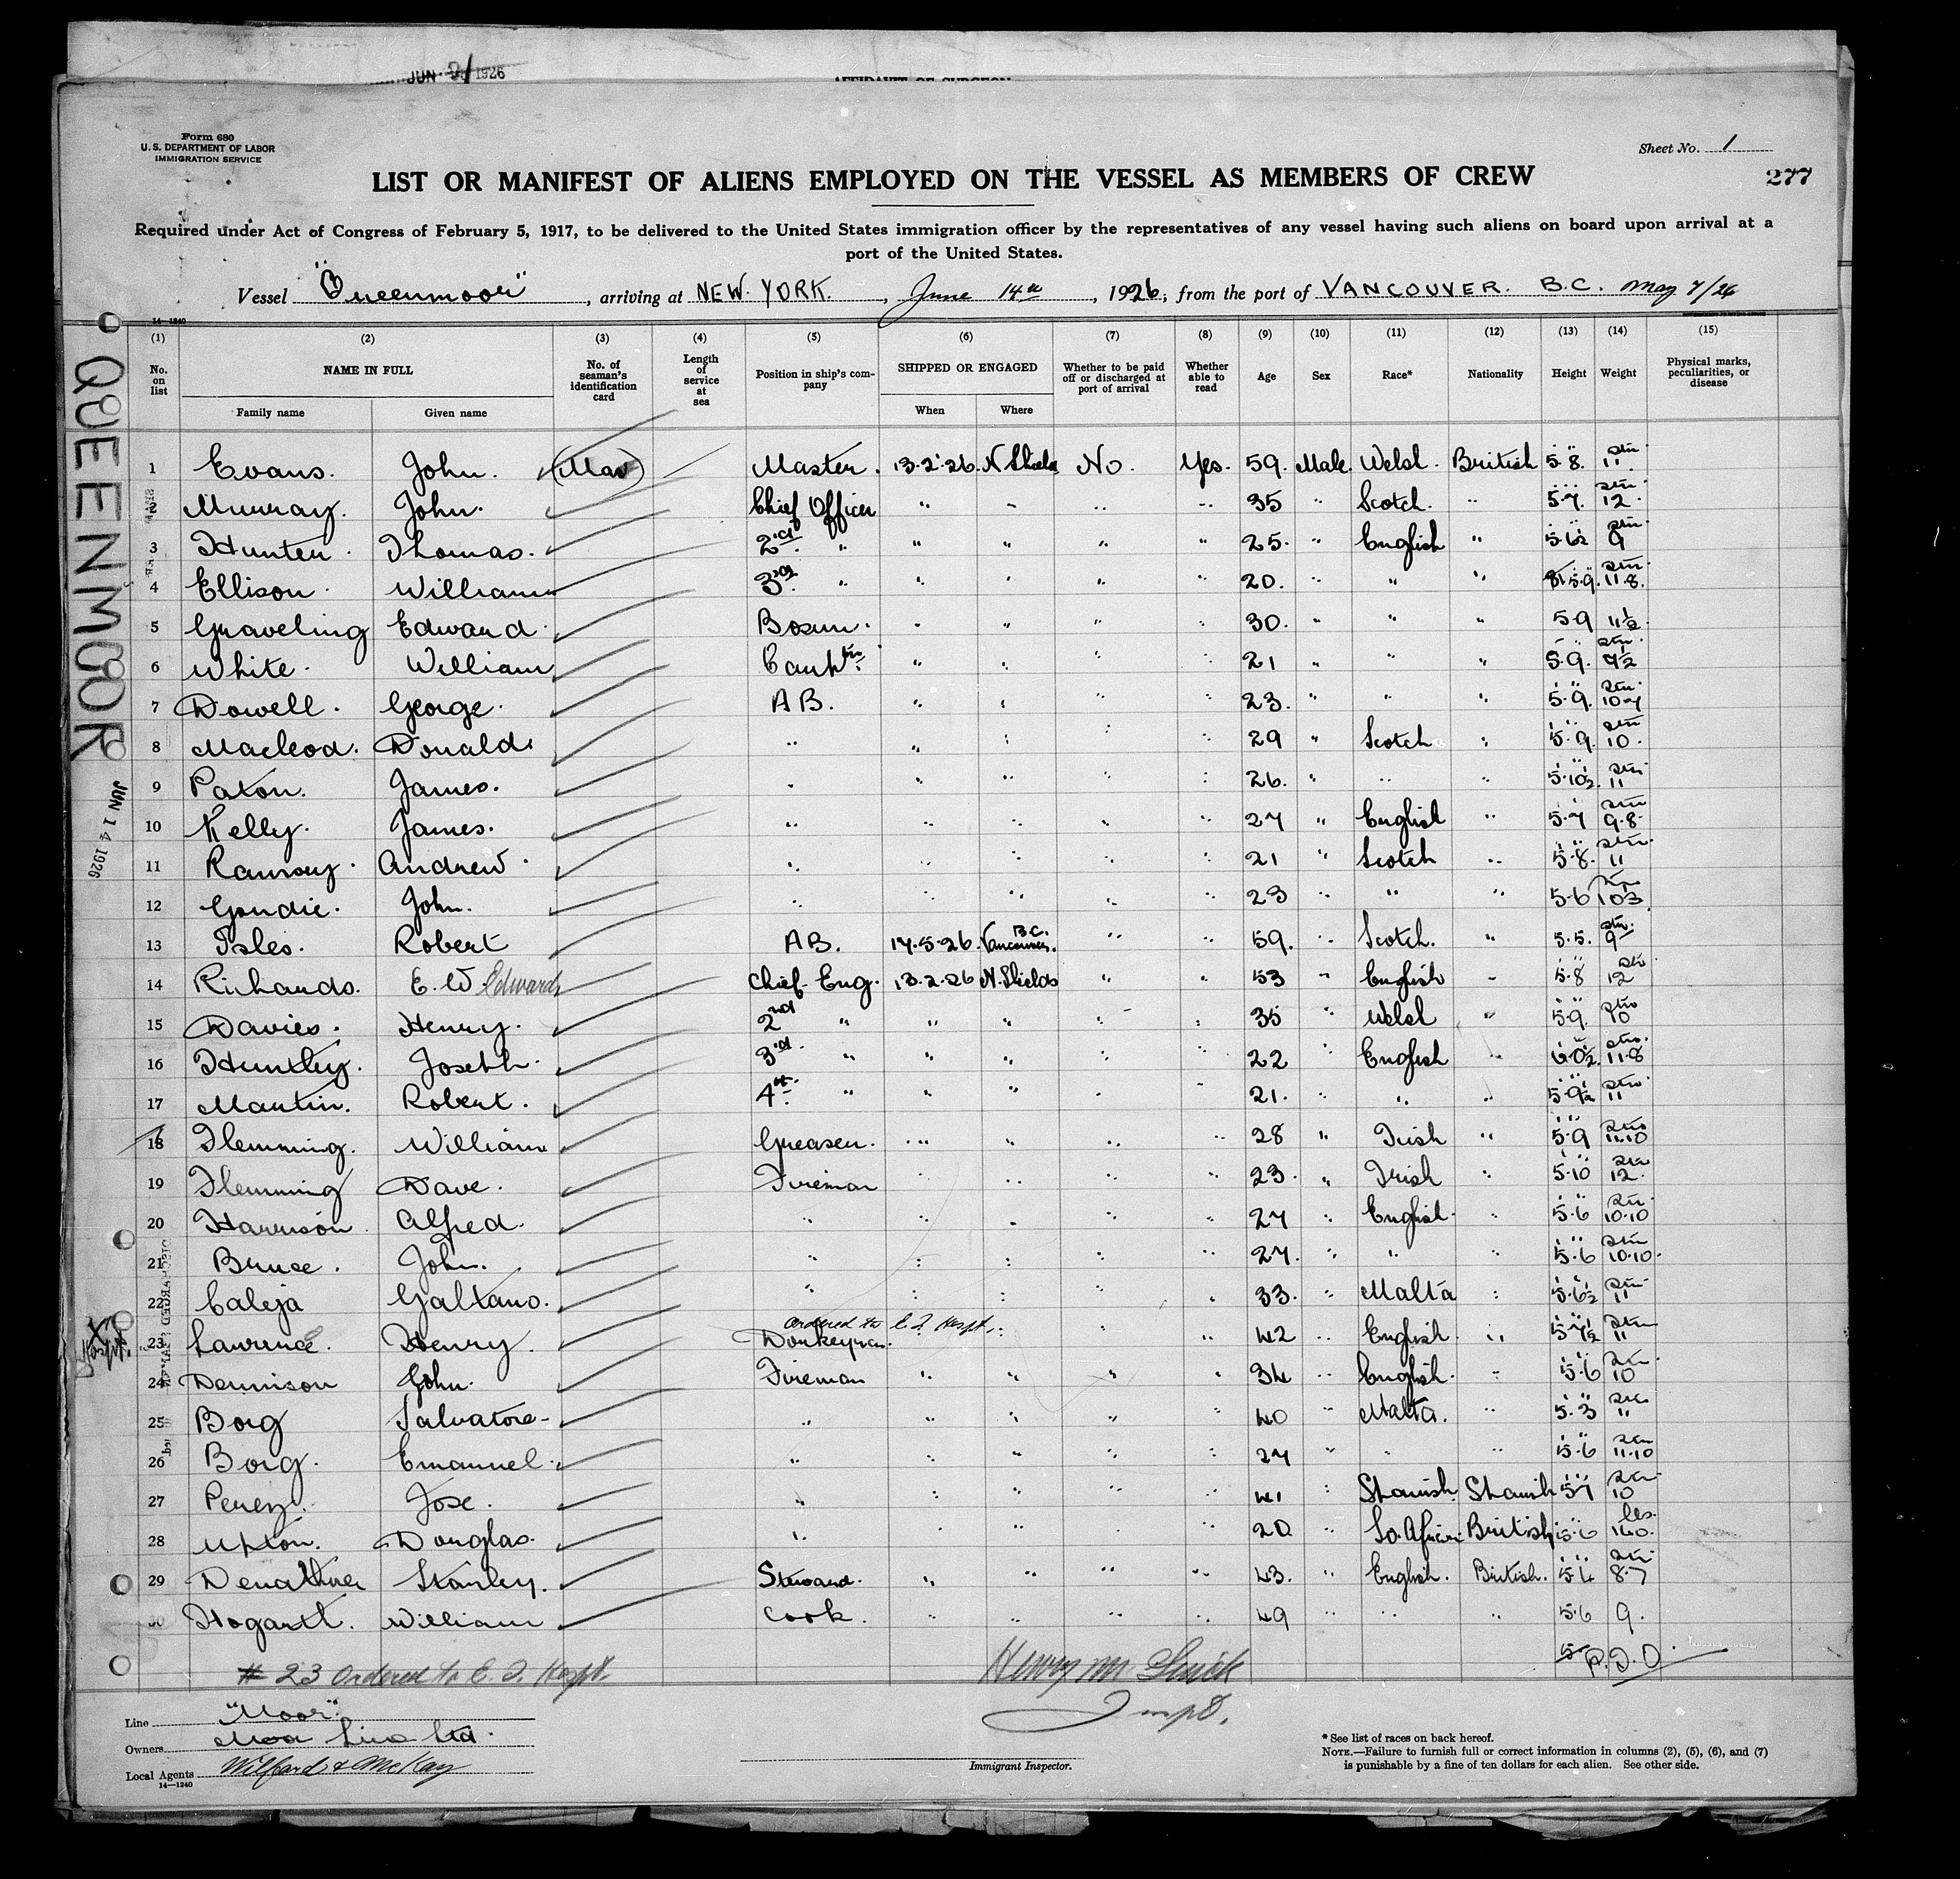 JUN 1926
AFFIDAVIT OF SURGEON
Form 680
U. S. DEPARTMENT OF LABOR
IMMIGRATION SERVICE
Sheet No. 1
LIST OR MANIFEST OF ALIENS EMPLOYED ON THE VESSEL AS MEMBERS OF CREW
277
Required under Act of Congress of February 5, 1917, to be delivered to the United States immigration officer by the representatives of any vessel having such aliens on board upon arrival at a
port of the United States.
Vessel "Queenmoor", arriving at NEW. YORK., June 14th, 1926, from the port of VANCOUVER. B.C. May 7/26
14—1240
(1) (2) (3) (4) (5) (6) (7) (8) (9) (10) (11) (12) (13) (14) (15)
No. on list NAME IN FULL No. of seaman's identification card Length of service at sea Position in ship's company SHIPPED OR ENGAGED Whether to be paid off or discharged at port of arrival Whether able to read Age Sex Race* Nationality Height Weight Physical marks, peculiarities, or disease
Family name Given name When Where
1 Evans. John. Master. 13.2.26. N Shields No. Yes. 59. Male. Welsh. British 5.8. stn 11
2 Murray. John. Chief Officer " " " " 35 " Scotch. " 5.7. stn 12
3 Hunter. Thomas. 2nd " " " " " 25. " English " 5.6½ stn 9
4 Ellison. William 3rd " " " " " 20. " " " 5.9. stn 11.8.
5 Graveling Edward. Bosun. " " " " 30. " " " 5.9 11½
6 White. William Carptr. " " " " 21 " " " 5.9. stn 9½
7 Dowell. George. AB. " " " " 23. " " " 5.9. stn 10-7
8 Macleod. Donald. " " " " " 29 " Scotch " 5.9. stn 10.
9 Paton. James. " " " " " 26. " " " 5.10½. stn 11
10 Kelly. James. " " " " " 27 " English " 5.7 stn 9.8
11 Ramsay. Andrew. " " " " " 21 " Scotch " 5.8. stn 11
12 Goudie. John. " " " " " 23 " " " 5.6 stn 10.3
13 Isles. Robert AB. 17.5.26. Vancouver. B.C. " " 59. " Scotch. " 5.5. stn. 9
14 Richards. E. W Edward Chief Eng. 13.2.26 N. Shields " " 53 " English " 5.8 stn 12
15 Davies. Henry. 2nd " " " " " 35 " Welsh " 5.9. stn 10
16 Huntley. Joseph. 3rd " " " " " 22 " English " 6.0½. stn. 11.8
17 Martin. Robert. 4th " " " " " 21. " " " 5.9½ stn 11
18 Flemming. William Greaser. " " " " 28 " Irish " 5.9 stn 11.10
19 Flemming Dave. Fireman " " " " 23. " Irish " 5.10 stn 12.
20 Harrison Alfred. " " " " " 27 " English. " 5.6 stn 10.10
21 Bruce. John. " " " " " 27. " " " 5.6 stn 10.10.
22 Caleja Galtano. " " " " " 33. " Malta " 5.6½ stn 11
ordered to E. I. Hospt.
23 Lawrence. Henry. Donkeyman. " " " 42 " English. " 5.7½ stn 11
24 Dennison John. Fireman " " " " 34 " English. " 5.6 stn 10
25 Borg Salvatore " " " " " 40 " Malta. " 5.3 stn 11
26 Borg. Emanuel. " " " " " 27 " " " 5.6 stn 11.10
27 Perez. Jose. " " " " " 41 " Spanish Spanish 5.7 stn 10
28 Upton. Douglas. " " " " " 20 " So. African British 5.6 lbs. 140.
29 Stanley. Steward. " " " " 43. " English. British. stn 8.7
30 Hogarth. William Cook. " " " " 49 " " " 5.6 9.
# 23 ordered to E. I. Hospt.
Henry M.
Inspt.
Line "Moor"
Owners Moor Line Ltd.
Local Agents Wilford & McKay
14—1240
Immigrant Inspector.
* See list of races on back hereof.
NOTE.—Failure to furnish full or correct information in columns (2), (5), (6), and (7)
is punishable by a fine of ten dollars for each alien. See other side.
QUEENMOOR
JUN 14 1926
Hospt.